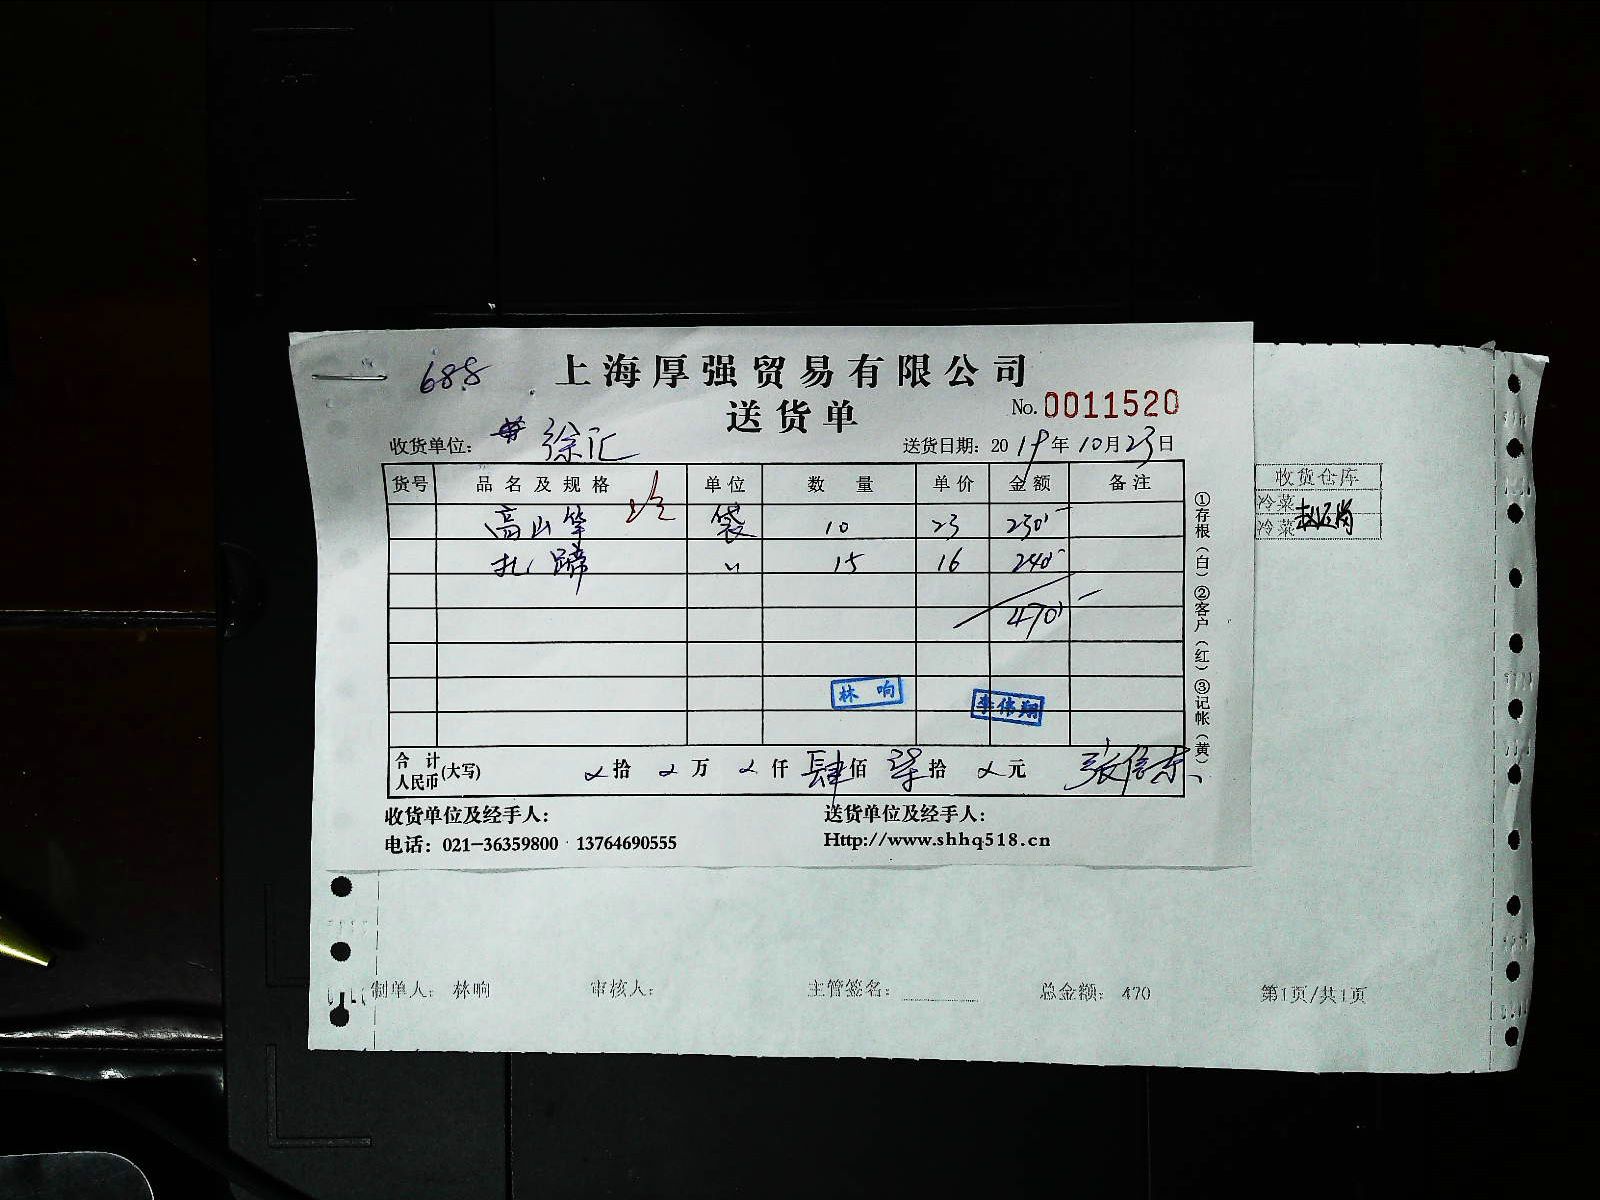 688
上海厚强贸易有限公司
送货单
No. 0011520
收货单位： 徐汇
送货日期：2019年10月23日
货号 品名及规格 单位 数量 单价 金额 备注
高山笋 袋 10 23 230
扎蹄 〃 15 16 240
470
林响 李伟翔
合计人民币(大写) 拾 万 仟 肆佰 柒拾 元
收货单位及经手人： 送货单位及经手人：
电话：021-36359800 13764690555 Http://www.shhq518.cn
①存根（白）②客户（红）③记帐（黄）
收货仓库
冷菜
冷菜
制单人： 林响 审核人： 主管签名： 总金额： 470 第1页/共1页